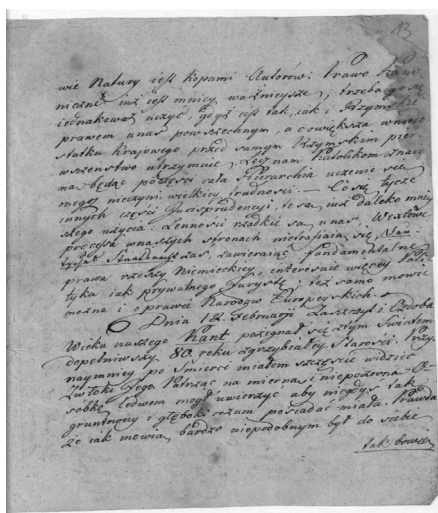 13
wie Natury iest kopami Autorów. Prawo Kano
niczne iuż iest mniey ważnieysze, trzeba go się
iednakowoż uczyć, gdyż iest tak, iak i Rzymskie
prawem u nas powszechnym, a co większa w nie do
statku kraiowego przed samym Rzymskim pier
wszenstwo utrzymuie. Lecz nam Katolikom znaio
ma będąc po części cała Hierarchia uczenie się
onego nieczyni wielkiey trudności. — Co się tycze
innych części Jurisprudencyi, te są iuż daleko mniey
szego użycia. Lenności rzadkie są u nas, Wexlowe
processa w naszych stronach nietrafiaią się,
Staatsrecht zas, zawieraiąc fundamentalne
prawa rzeszy Niemieckiey, interesuie więcey Poli
tyka iak prywatnego Jurystę, i też samo mowić
można i o prawie Narodow Europeyskich.
Dnia 12 Februarii Zaszczyt i Ozdoba
Wieku naszego Kant pożegnał się z tym Swiatem
dopełniwszy 80. roku zgrzybiałey Starości. Przy
naymniey po Śmierci miałem szczęście widzieć
Zwłoki Jego. Patrząc na mierna i niepozorna O
sobkę ledwom mogł uwierzyć aby niegdys tak
gruntowny i głęboki rozum posiadać miała. Prawda
że iak mowią, bardzo niepodobnym był do siebie
tak bowiem